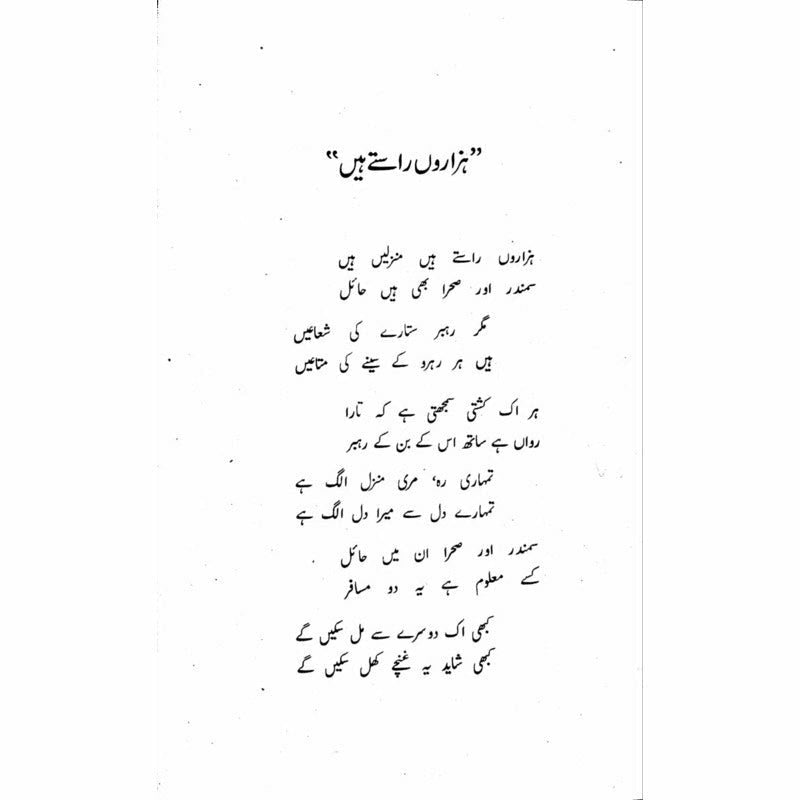 ”ہزاروں راستے ہیں“
ہزاروں راستے ہیں منزلیں ہیں
سمندر اور صحرا بھی ہیں حائل
مگر رہبر ستارے کی شعاعیں
ہیں ہر رہرو کے سینے کی متاعیں
ہر اک کشتی سمجھتی ہے کہ تارا
رواں ہے ساتھ اس کے بن کے رہبر
تمہاری رہ، مری منزل الگ ہے
تمہارے دل سے میرا دل الگ ہے
سمندر اور صحرا ان میں حائل
کسے معلوم ہے یہ دو مسافر
کبھی اک دوسرے سے مل سکیں گے
کبھی شاید یہ غنچے کھل سکیں گے